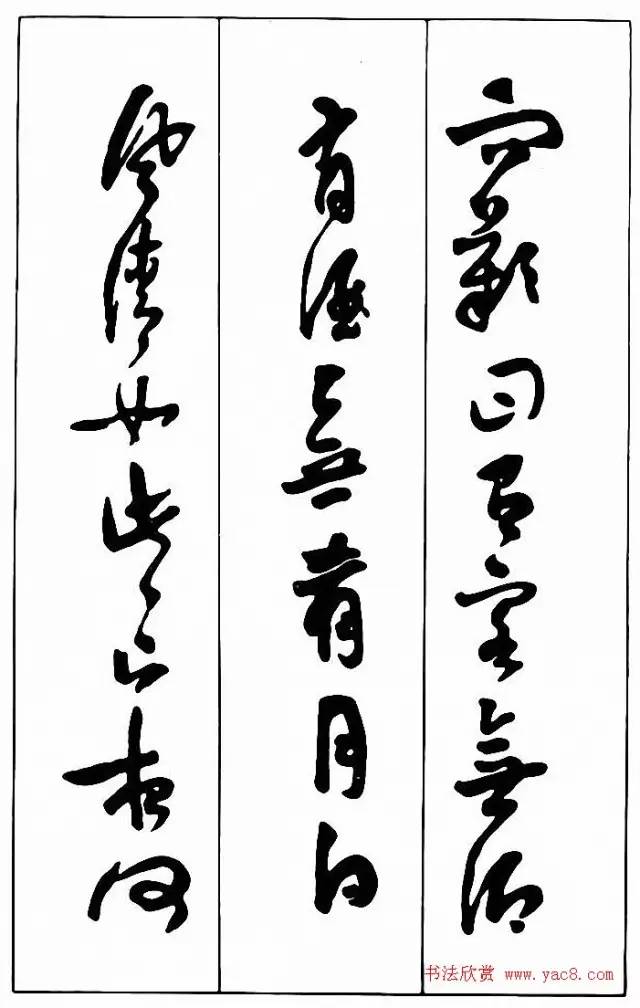 而歎曰有客無酒
有酒無肴月白
風清如此良夜何
书法欣赏 www.yac8.com